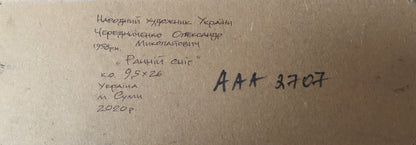 Народний художник України
Чередниченко Олександр
1958р.н. Миколайович
„Ранній сніг"
к.о. 9,5х26
Україна
м. Суми
2020р.
ААА 2707